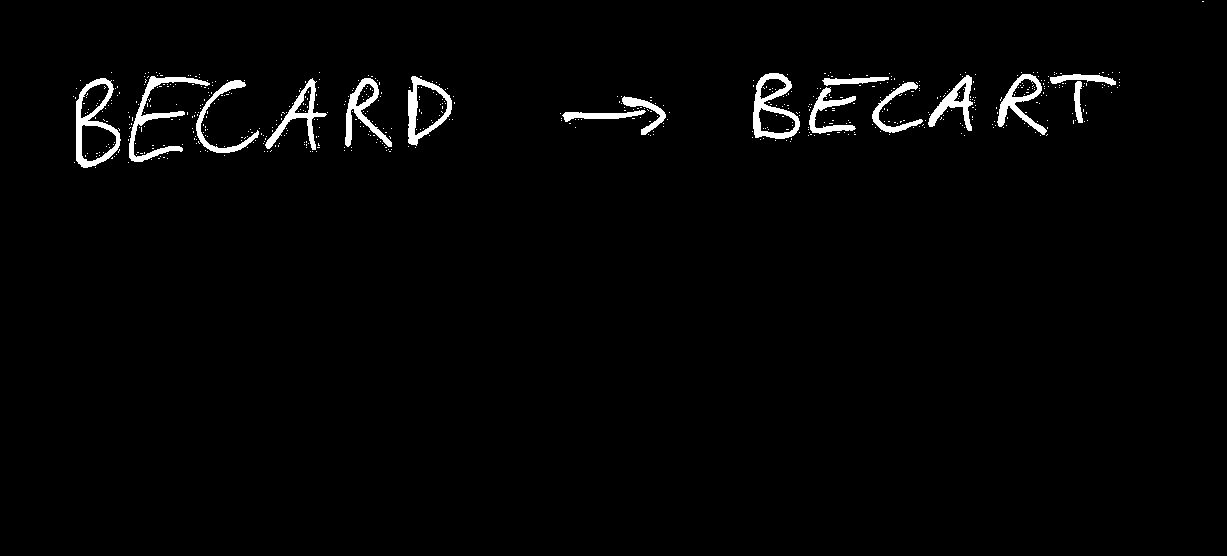 BECARD → BECART